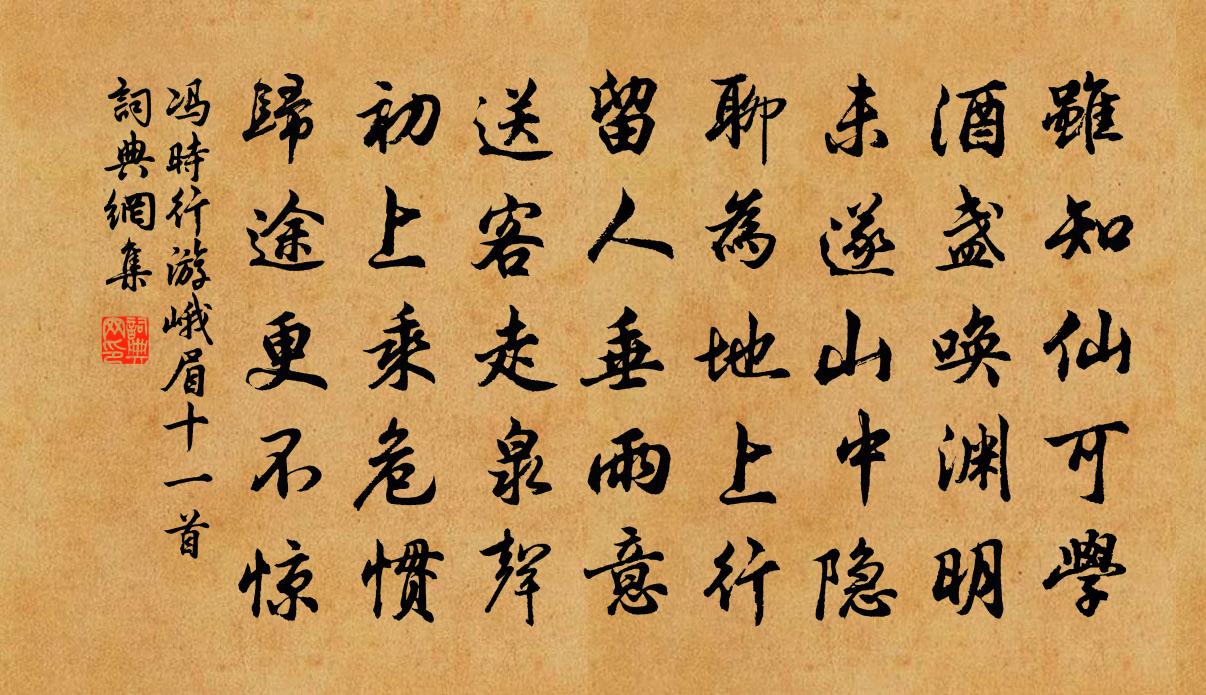 雖知仙可學
酒盏唤渊明
未遂山中隐
聊為地上行
留人垂雨意
送客走泉聲
初上乘危慣
歸途更不惊
冯時行游峨眉十一首
詞典網集
詞典网印